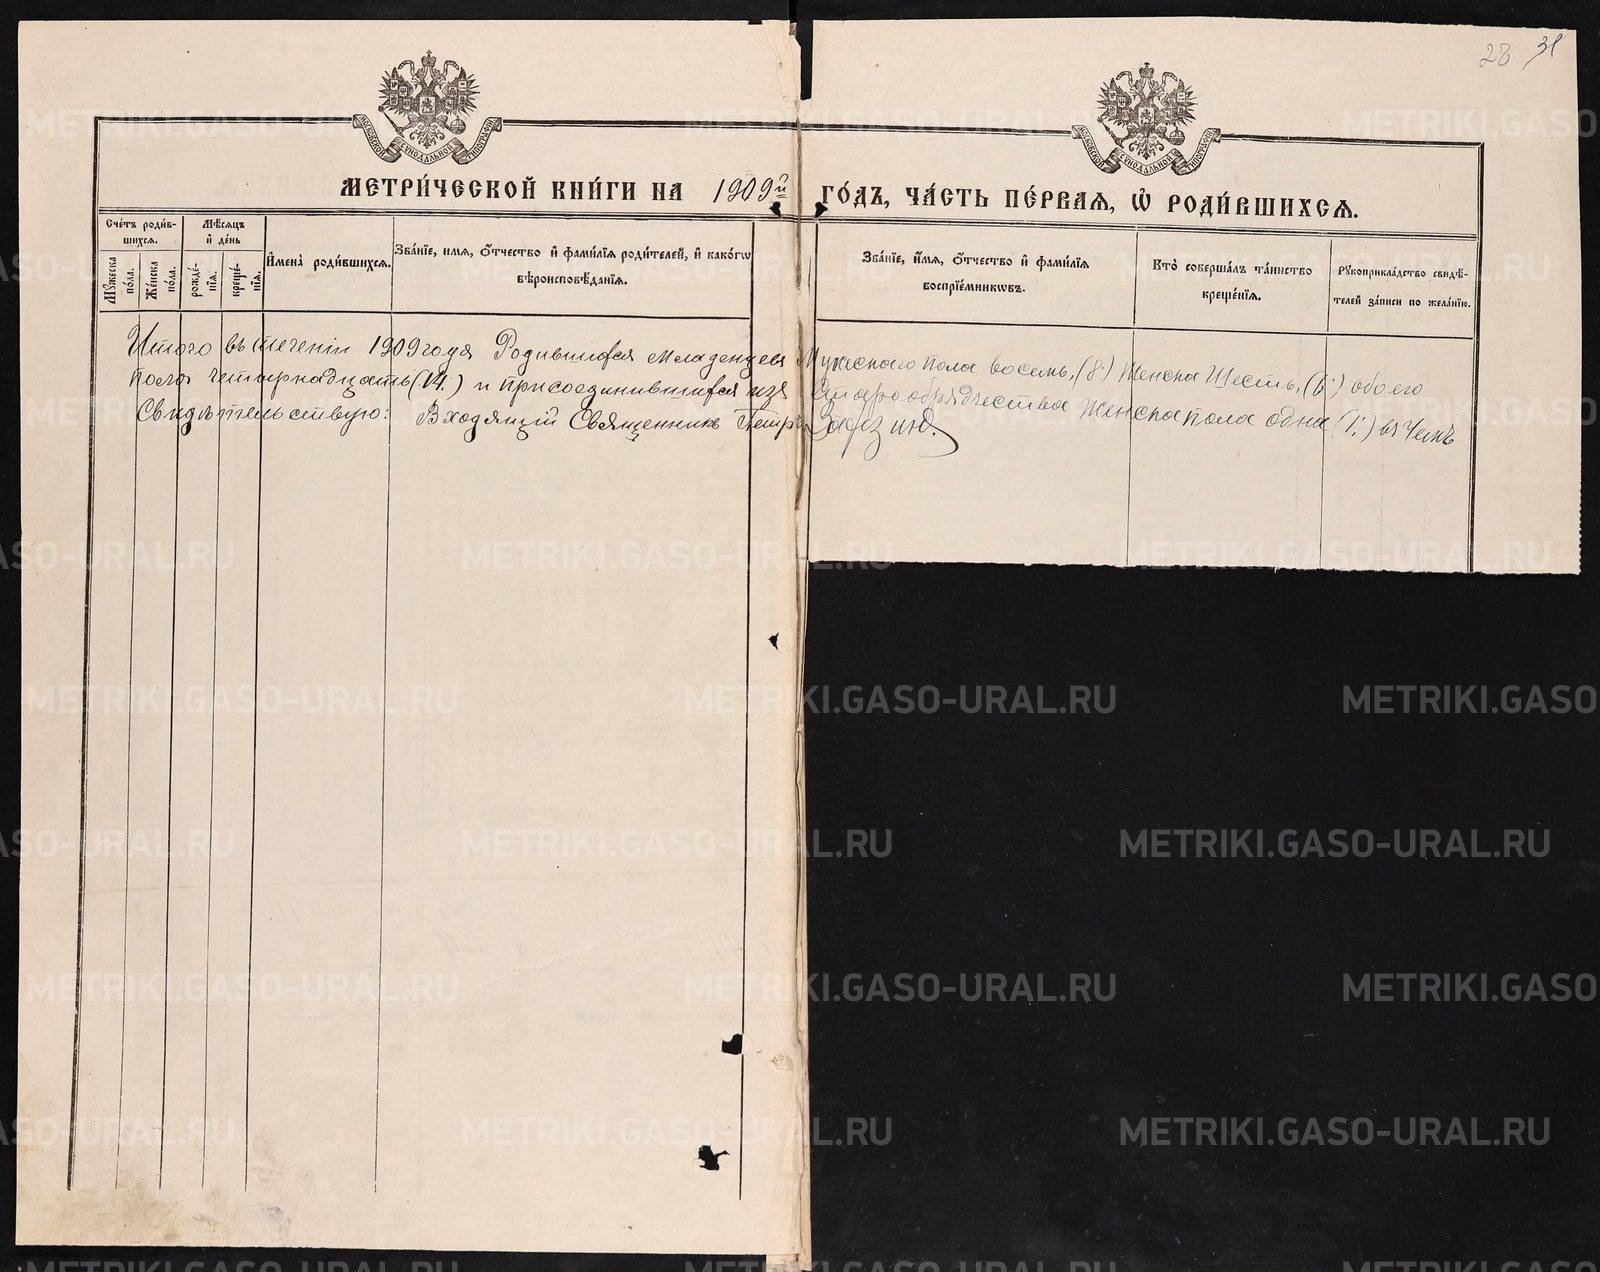 28 31
МОСКОВСКОЙ СѴНОДАЛЬНОЙ ТИПОГРАФІИ
МОСКОВСКОЙ СѴНОДАЛЬНОЙ ТИПОГРАФІИ
МЕТРИ́ЧЕСКОЙ КНИ́ГИ НА 1909й ГО́ДЪ, ЧА́СТЬ ПЕ́РВАЯ, Ѡ РОДИ́ВШИХСЯ.
Сче́тъ роди́в-
шихся.
Мѣ́сяцъ
и де́нь
Мꙋ́жеска
по́ла.
Же́нска
по́ла.
рожде́-
нїя.
креще́-
нїя.
Имена̀ роди́вшихся.
Зва́нїе, имя, о́тчество и фами́лїя роди́телей, и како́гѡ
вѣроисповѣ́данїя.
Зва́нїе, и́мя, о́тчество и фами́лїя
воспрїе́мникѡвъ.
Кто̀ соверша́лъ та́инство
креще́нїя.
Рꙋкоприкла́дство свидѣ́-
телей за́писи по жела́нїю.
Итого въ теченіи 1909 года Родившихся Младенцевъ Мужескаго пола восемь, (8:) Женска Шесть, (6:) обоего
пола четырнадцать (14.) и присоединившихся изъ Старообрядчества Женска пола одна (1:) въ чемъ
Свидѣтельствую: Входящій Священникъ Петръ
METRIKI.GASO-URAL.RU